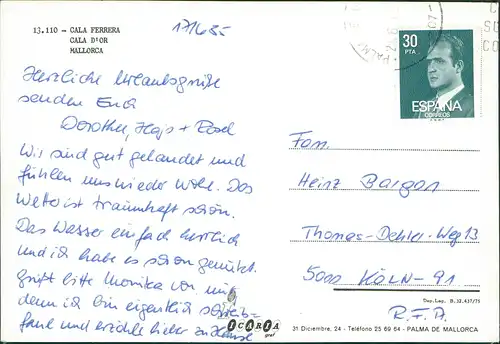 13.110 – CALA FERRERA
CALA D'OR
MALLORCA
17.6.85
Herzliche Urlaubsgrüße
senden Euch
Dorothee, Hajo + Rosel
Wir sind gut gelandet und
fühlen uns wieder wohl. Das
Wetter ist traumhaft schön.
Das Wasser einfach herrlich
und ich habe es schon genutzt.
Grüßt bitte Monika von mir
denn ich bin eigentlich schreib-
faul und erzähle lieber zuhause
30
PTA
ESPAÑA
CORREOS
Fam.
Heinz Bargon
Thomas-Dehler-Weg 13
5000 KÖLN-91
R.F.A.
Dep. Leg. B. 32.437/75
ICARIA
graf
31 Diciembre, 24 - Teléfono 25 69 64 - PALMA DE MALLORCA